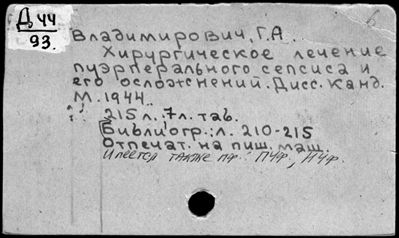 Д 44
93.
Владимирович, Г.А.
Хирургическое лечение
пуэрперального сепсиса и
его осложнений. Дисс. Канд.
М. 1944.
215 л. 7л. таб.
Библиогр.: л. 210-215
Отпечат. на пиш. маш.
Имеется также пф.: ПЧф, НЧф.